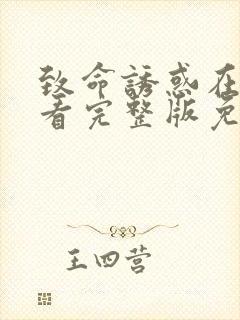 致命誘惑在
看完整版免
王四营